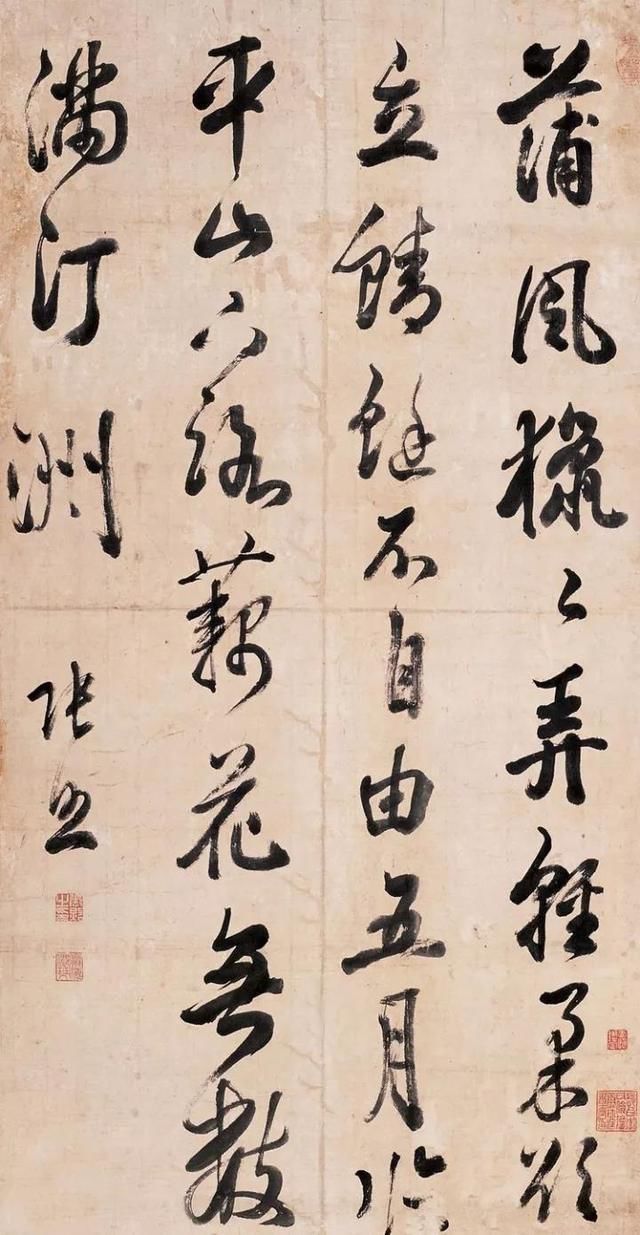 蒲風獵〻弄輕柔欲
立蜻蜓不自由五月臨
平山下路藕花無數
滿汀洲 張照